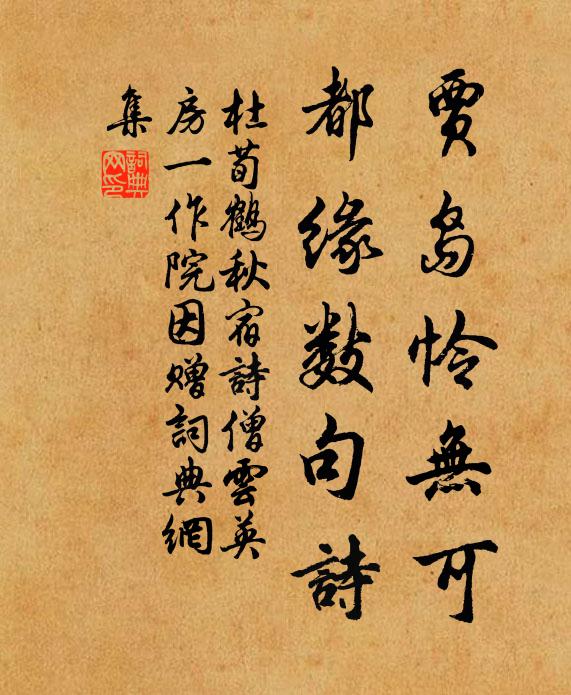 賈島怜無可
都緣數句詩
杜荀鶴秋宿詩僧雲英
房一作院因贈詞典網
集
詞典
网印